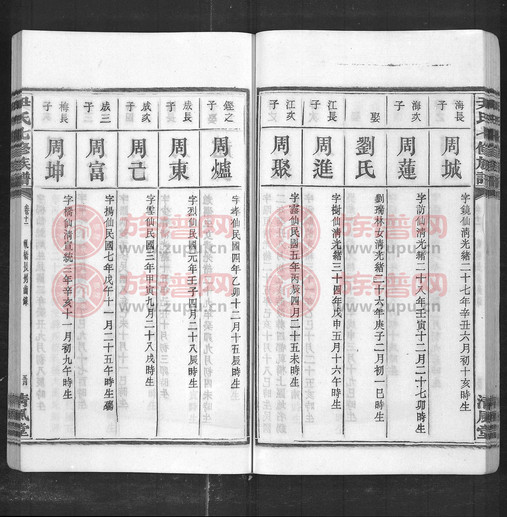 尹氏七修族譜
清風堂
海長子
周城
字鏡仙清光緒二十七年辛丑六月初十亥時生
海次子
周蓮
字訪仙清光緒二十八年壬寅十二月二十七卯時生
娶
劉氏
劉瑪林女清光緒二十六年庚子二月初一巳時生
江次子
周進
字樹仙清光緒三十四年戊申五月十六午時生
江長子
周聚
仙民國五年丙辰四月二十五未時生
鑑之子
周爐
字孝仙民國四年乙卯十二月十五辰時生
成長子
周東
字烈仙民國元年壬子四月二十八辰時生
成次子
周己
字聖仙民國三年甲寅九月二十八戌時生
成三子
周富
字揚仙民國七年戊午十一月二十五午時生
梅長子
周坤
仙清宣統三年辛亥十一月初九午時生
尹氏七修族譜
清風堂
族譜网
www.zupu.cn